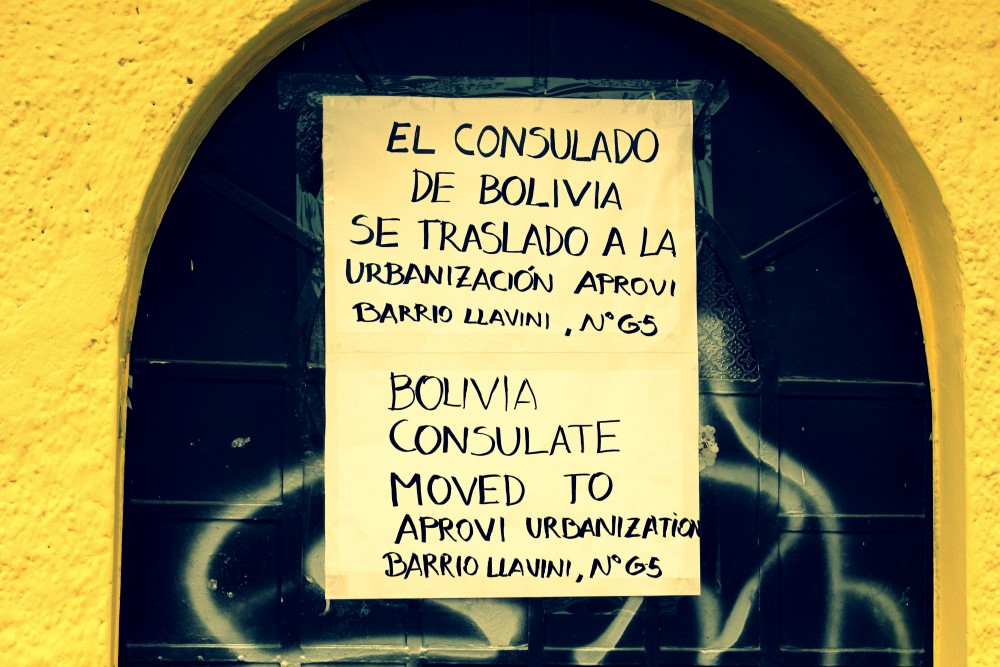 EL CONSULADO
DE BOLIVIA
SE TRASLADO A LA
URBANIZACIÓN APROVI
BARRIO LLAVINI, N° G-5
BOLIVIA
CONSULATE
MOVED TO
APROVI URBANIZATION
BARRIO LLAVINI, N° G-5